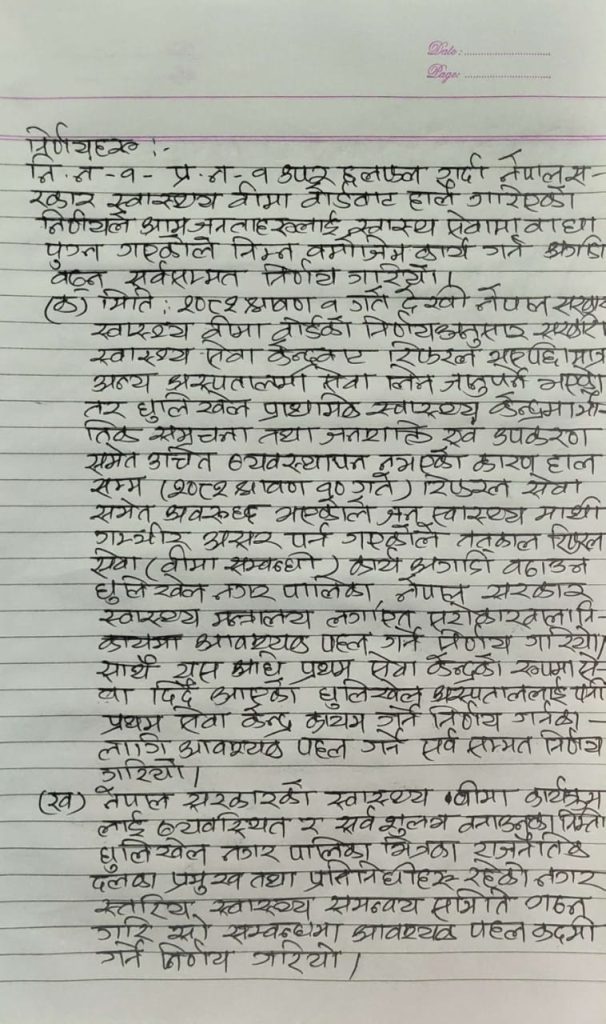 Date:
Page:
निर्णयहरू :-
नि.नं-१- प्र.नं-१ उपर छलफल गर्दा नेपाल स-
रकार स्वास्थ्य वीमा वोर्डवाट हालै गरिएको
निर्णयले आम जनताहरूलाई स्वास्थ्य सेवामा वाधा
पुग्न गएकोले निम्न वमोजिम कार्य गर्न अगाडी
वढ्न सर्वसम्मत निर्णय गरियो।
(क) मिति : २०८२ श्रावण १ गते देखी नेपाल सरकार
स्वास्थ्य वीमा वोर्डको निर्णय अनुसार सरकारी
स्वास्थ्य सेवा केन्द्रवाट रिफरल भएपछि मात्र
अन्य अस्पतालमा सेवा लिन जानुपर्ने भएको
तर धुलिखेल प्राथमिक स्वास्थ्य केन्द्रमा भौ-
तिक संमुचना तथा जनशक्ति एवं उपकरण
समेत उचित व्यवस्थापन नभएको कारण हाल
सम्म (२०८२ श्रावण १० गते) रिफरल सेवा
समेत अवरूद्ध भएकोले जन स्वास्थ्य माथी
गम्भीर असर पर्न गएकोले तत्काल रिफरल
सेवा (वीमा सम्वन्धी) कार्य अगाडी वढाउन
धुलिखेल नगर पालिका, नेपाल सरकार
स्वास्थ्य मन्त्रालय लगाएत सरोकारवाला नि-
कायमा आवश्यक पहल गर्ने निर्णय गरियो।
साथै यस अघि प्रथम सेवा केन्द्रको रूपमा से-
वा दिदै आएको धुलिखेल अस्पताललाई पनी
प्रथम सेवा केन्द्र कायम गर्ने निर्णय गर्नका-
लागि आवश्यक पहल गर्न सर्व सम्मत निर्णय
गरियो।
(ख) नेपाल सरकारको स्वास्थ्य वीमा कार्यक्रम
लाई व्यवस्थित र सर्वशुलभ वनाउनका निम्ती
धुलिखेल नगर पालिका भित्रका राजनैतिक
दलका प्रमुख तथा प्रतिनिधीहरू रहेको नगर
स्तरिय स्वास्थ्य समन्वय समिति गठन
गरि सो सम्वन्धमा आवश्यक पहल कदमी
गर्ने निर्णय गरियो।